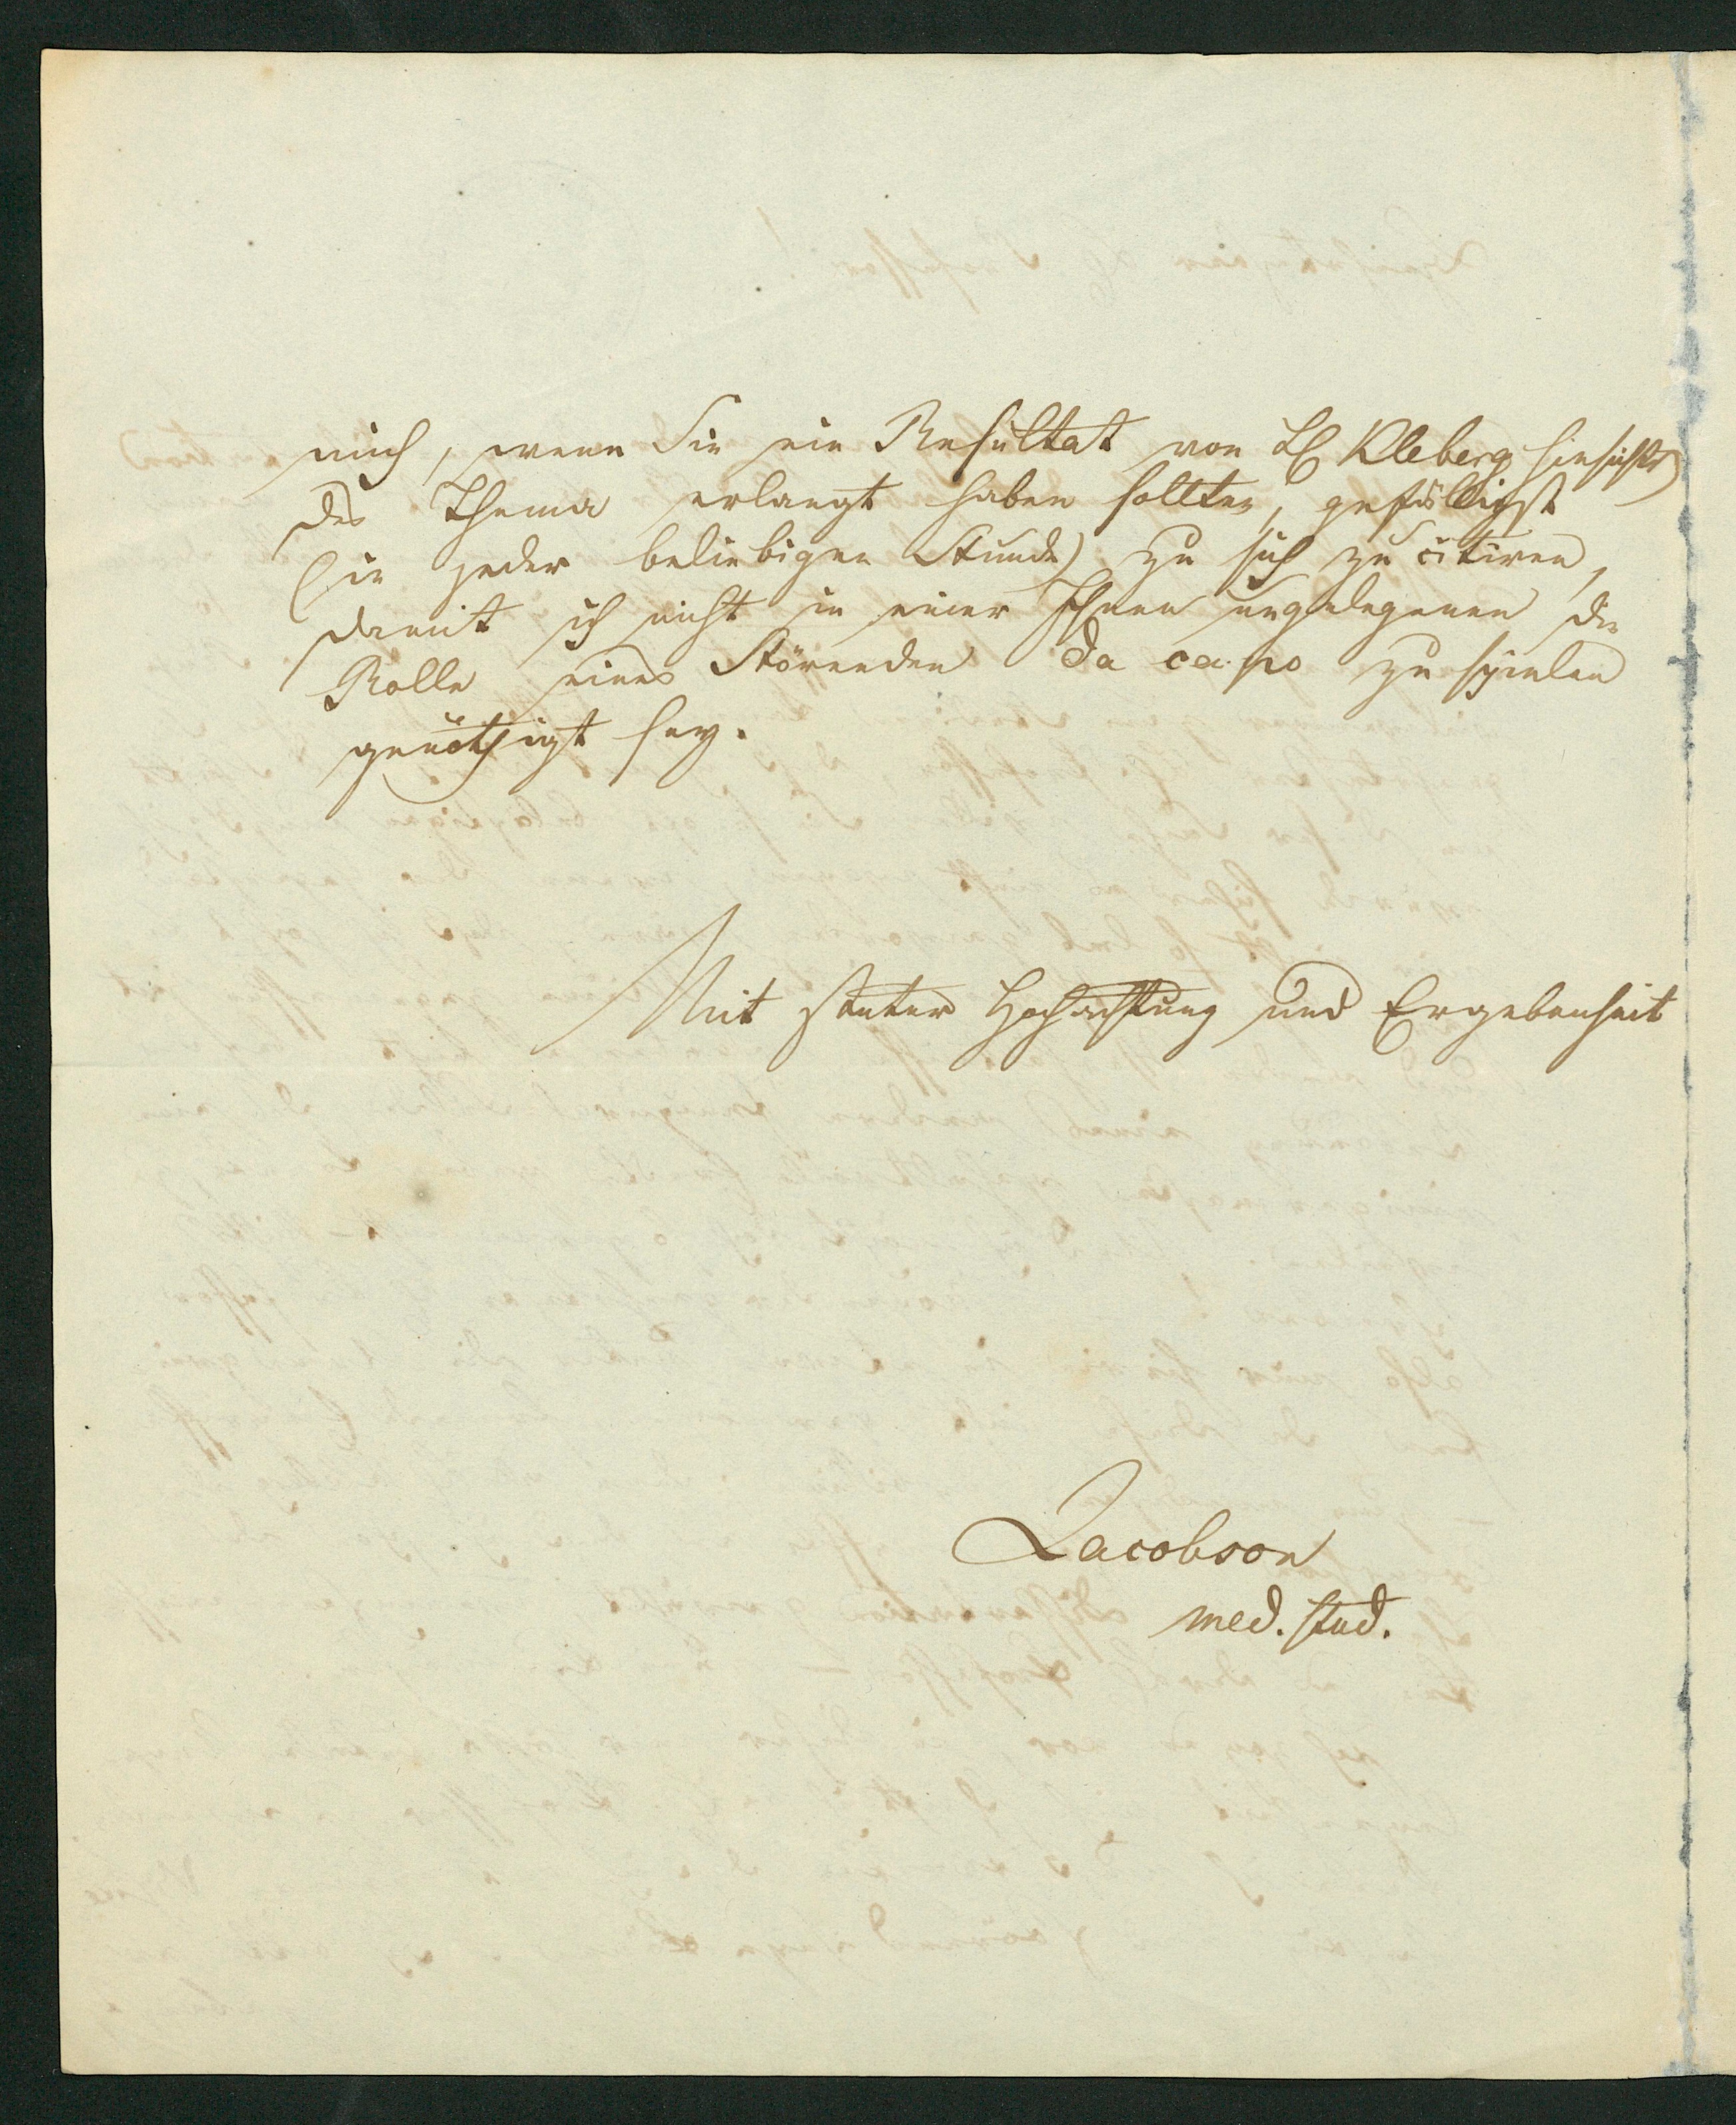 mich, wenn Sie ein Resultat von H. Kleberg hinsichts
des Thema erlangt haben sollten, gefälligst
(in jeder beliebigen Stunde) zu sich zu citiren,
damit ich nicht in einer Ihnen ungelegenen die
Rolle eines Störenden da capo zu spielen
genöthigt sey.
Mit steter Hochachtung und Ergebenheit
Jacobson
med. stud.